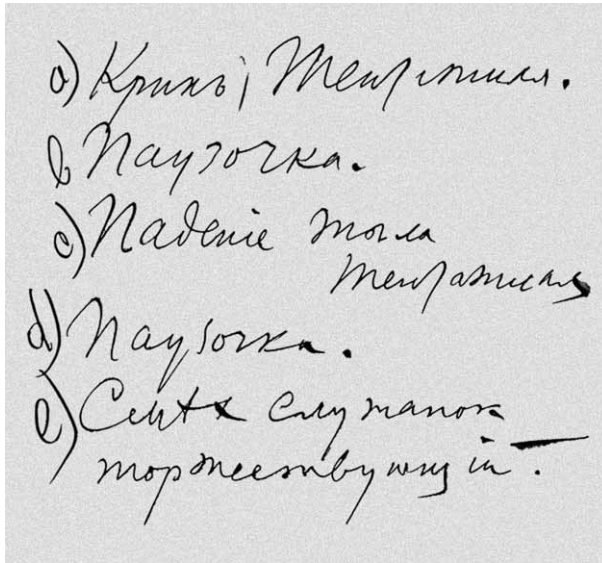 a) Крикъ; Тентажиля.
b) Паузочка.
c) Паденіе тѣла
Тентажиля
d) Паузочка.
e) Смѣхъ служанокъ
торжествующій.